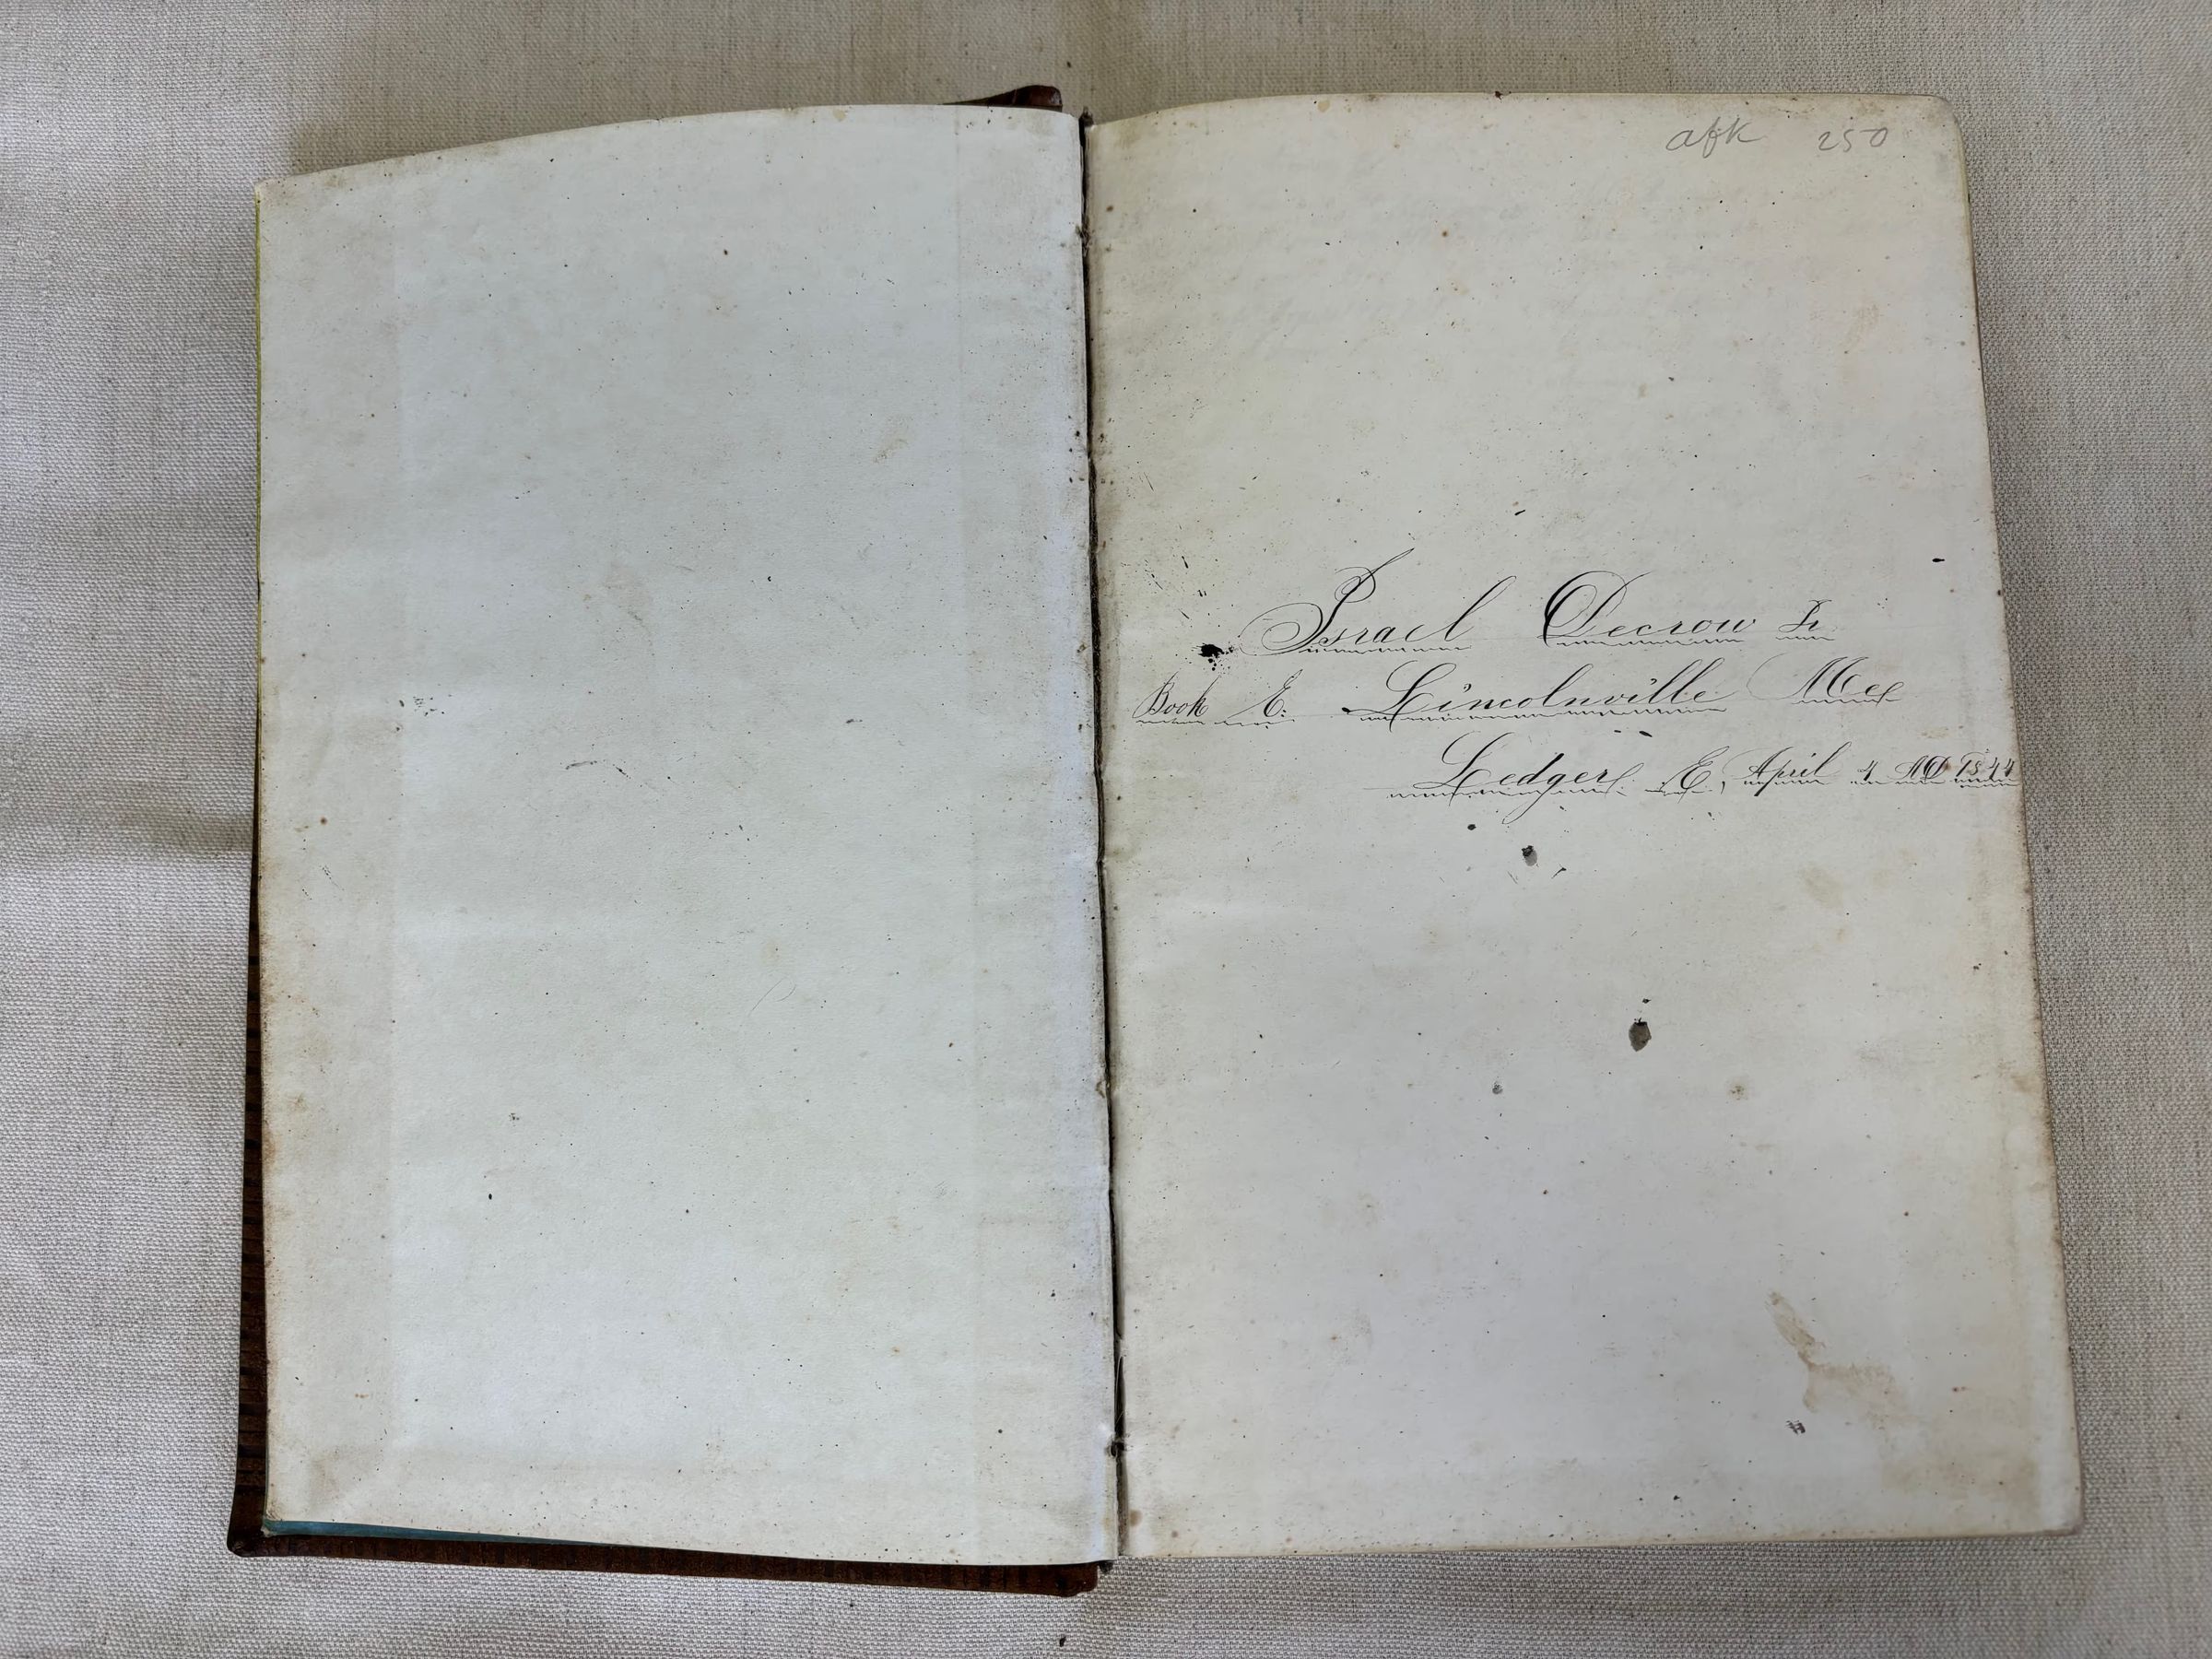 afk 250
Israel Decrow Jr
Book E. Lincolnville Me
Ledger E, April 4 AD 1844